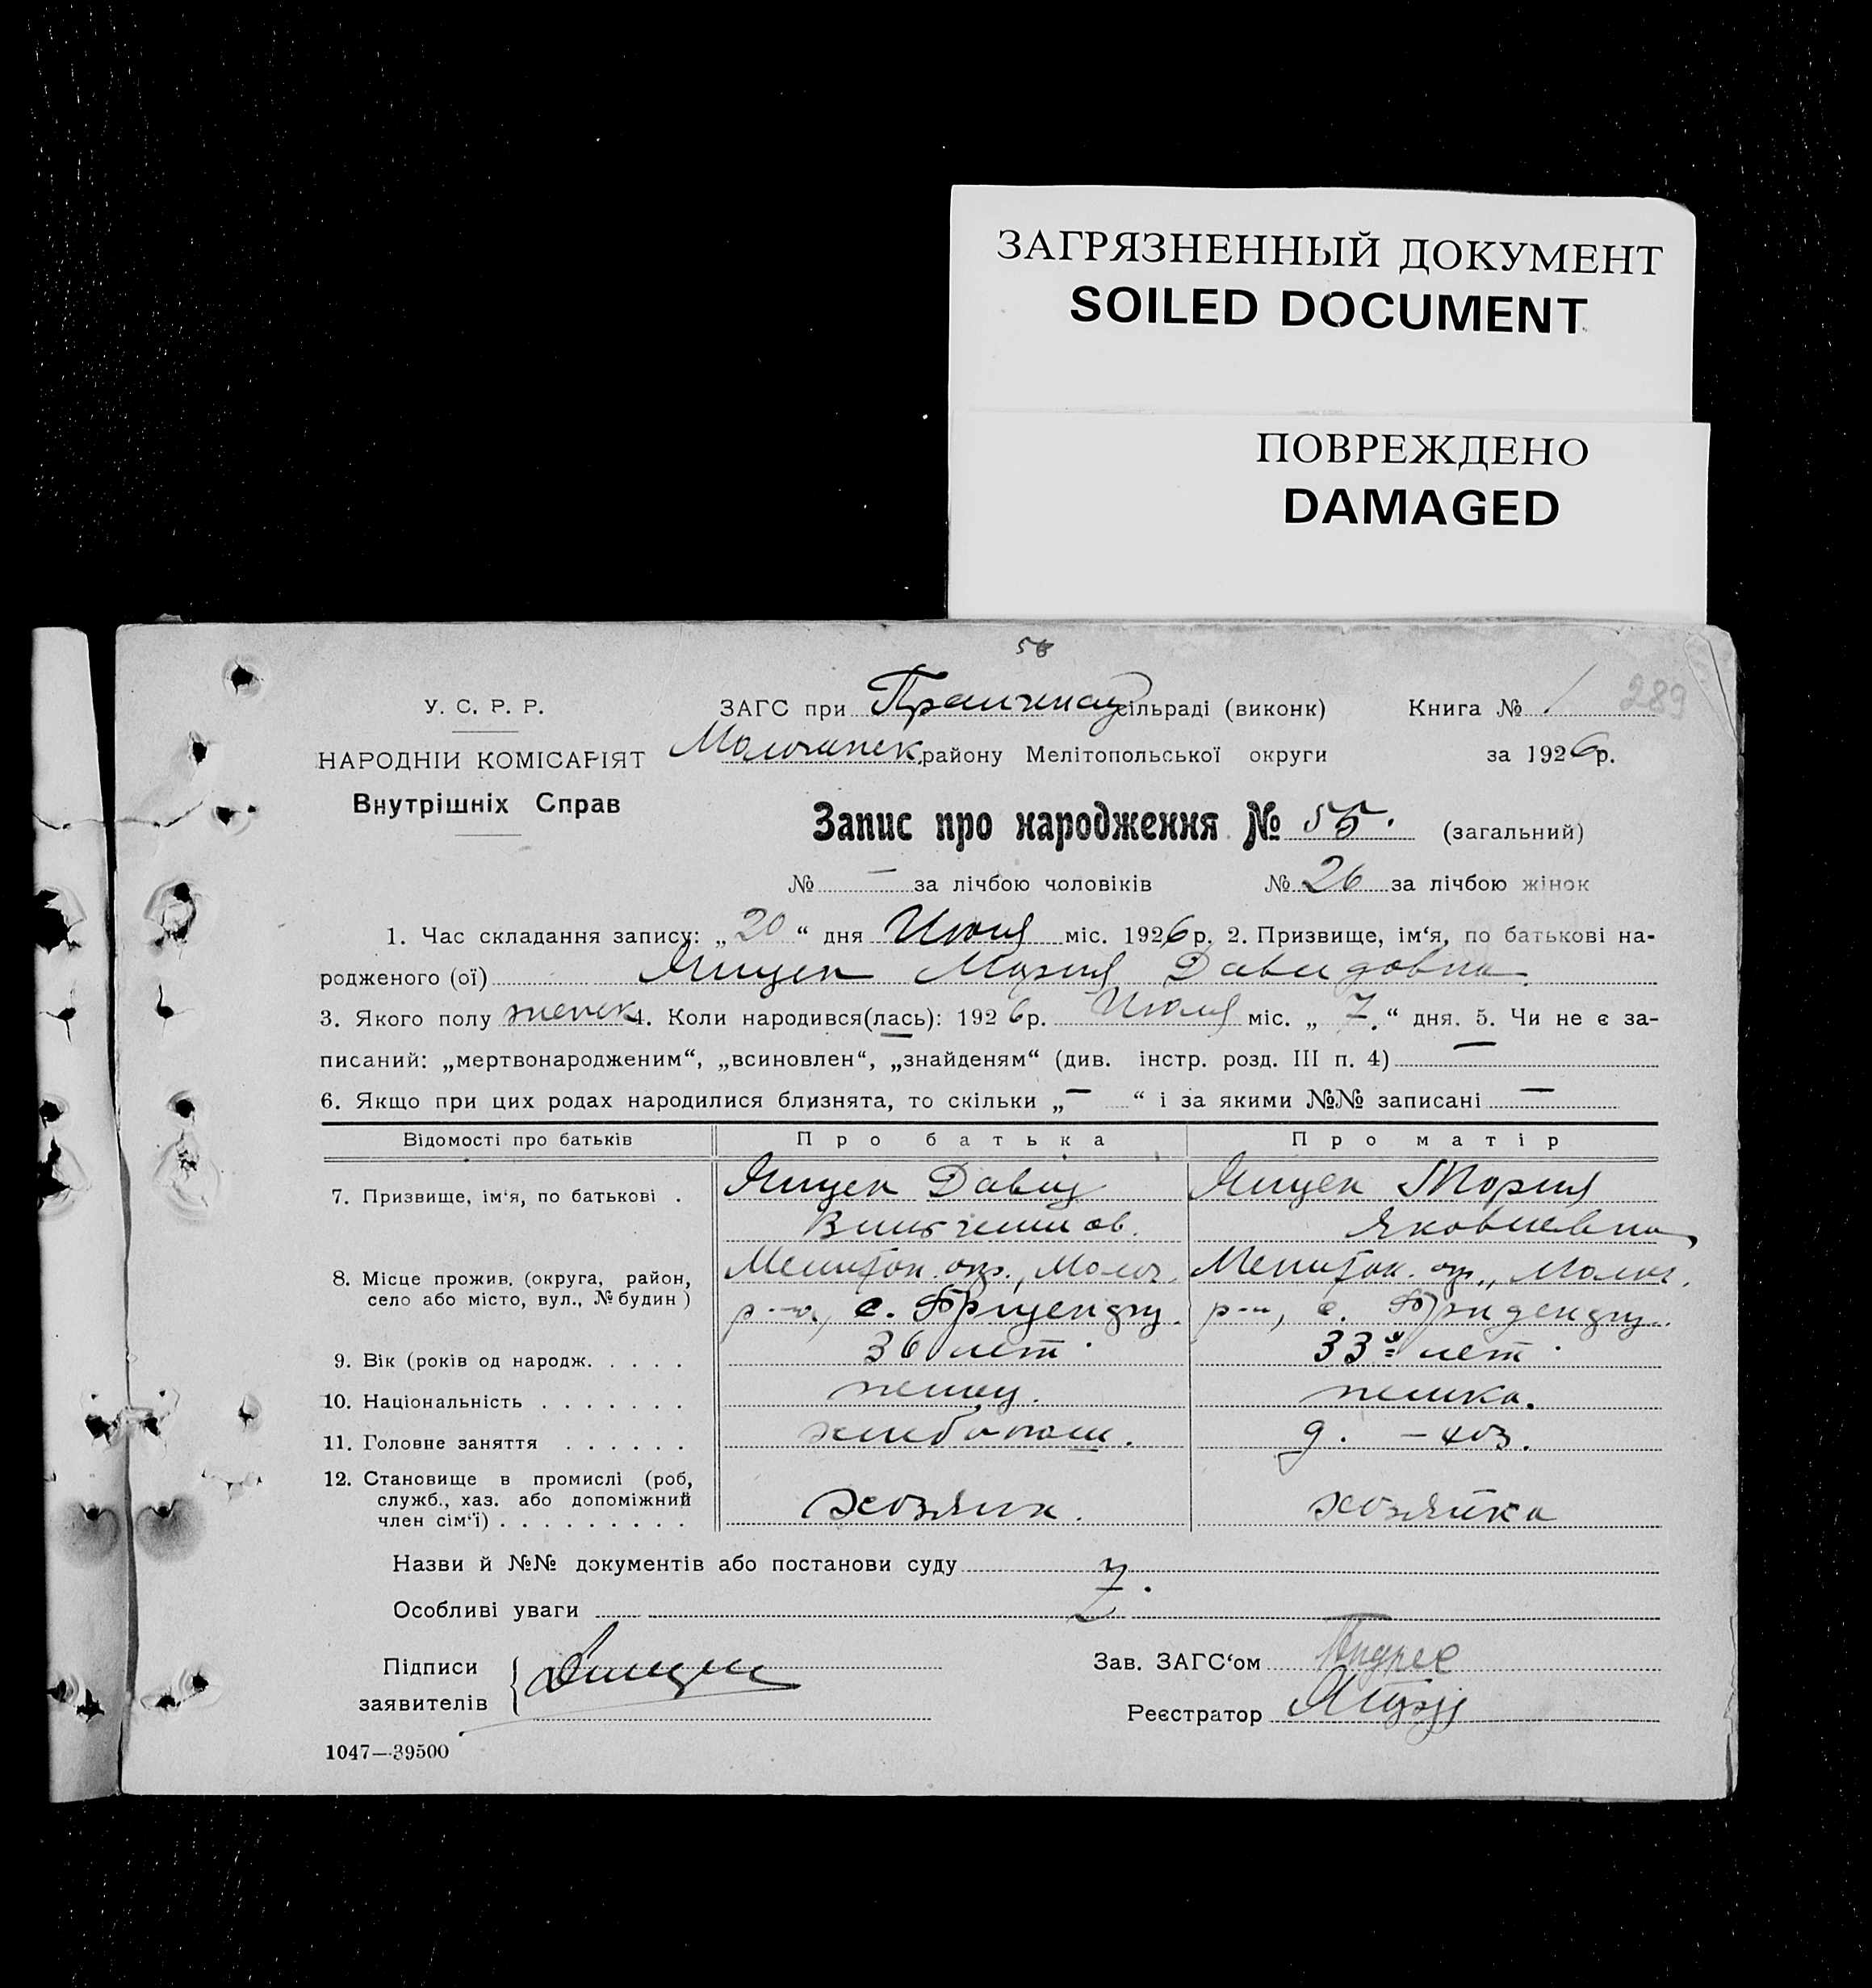 ЗАГРЯЗНЕННЫЙ ДОКУМЕНТ
SOILED DOCUMENT
ПОВРЕЖДЕНО
DAMAGED
У. С. Р. Р.
ЗАГС при сільраді (виконк) Книга № 1 289
НАРОДНІЙ КОМІСАРІЯТ
Молочанск. району Мелітопольської округи за 1926 р.
Внутрішніх Справ
Запис про народження № 55. (загальний)
№ — за лічбою чоловіків № 26 за лічбою жінок
1. Час складання запису: „ 20 “ дня Июля міс. 1926 р. 2. Призвище, ім‘я, по батькові на-
родженого (ої) Мария Давидовна.
3. Якого полу женск 4. Коли народився(лась): 1926 р. Июля міс. „ 7. “ дня. 5. Чи не є за-
писаний: „мертвонародженим“, „всиновлен“, „знайденям“ (див. інстр. розд. III п. 4) —
6. Якщо при цих родах народилися близнята, то скільки „ — “ і за якими №№ записані —
Відомості про батьків Про батька Про матір
7. Призвище, ім‘я, по батькові . Давид Мария
Яковлевна
8. Місце прожив. (округа, район, Мелитоп. окр., Молоч. Мелитоп. окр., Молоч.
село або місто, вул., № будин) р-на, с. р-н, с.
9. Вік (років од народж. . . . . 36 лет. 33 лет.
10. Національність . . . . . . . немец. немка.
11. Головне заняття . . . . . . хлебопаш. д. – хоз.
12. Становище в промислі (роб,
служб., хаз. або допоміжний хозяин. хозяйка
член сім‘ї) . . . . . . . . .
Назви й №№ документів або постанови суду
Особливі уваги
Підписи
Зав. ЗАГС‘ом
заявителів
Реєстратор
1047—39500